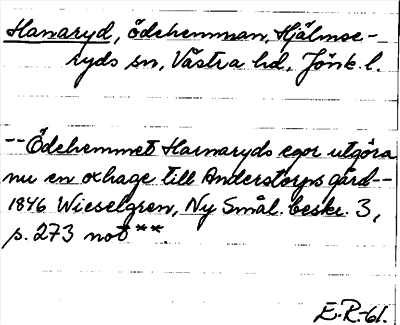 Hamaryd, ödehemman, Hjälmse-
ryds sn, Västra hd, Jönk. l.
-- Ödehemmet Hamaryds egor utgöra
nu en oxhage till Anderstorps gård --
1846 Wieselgren, Ny Smål. beskr. 3,
s. 273 not **.
E.R-61.